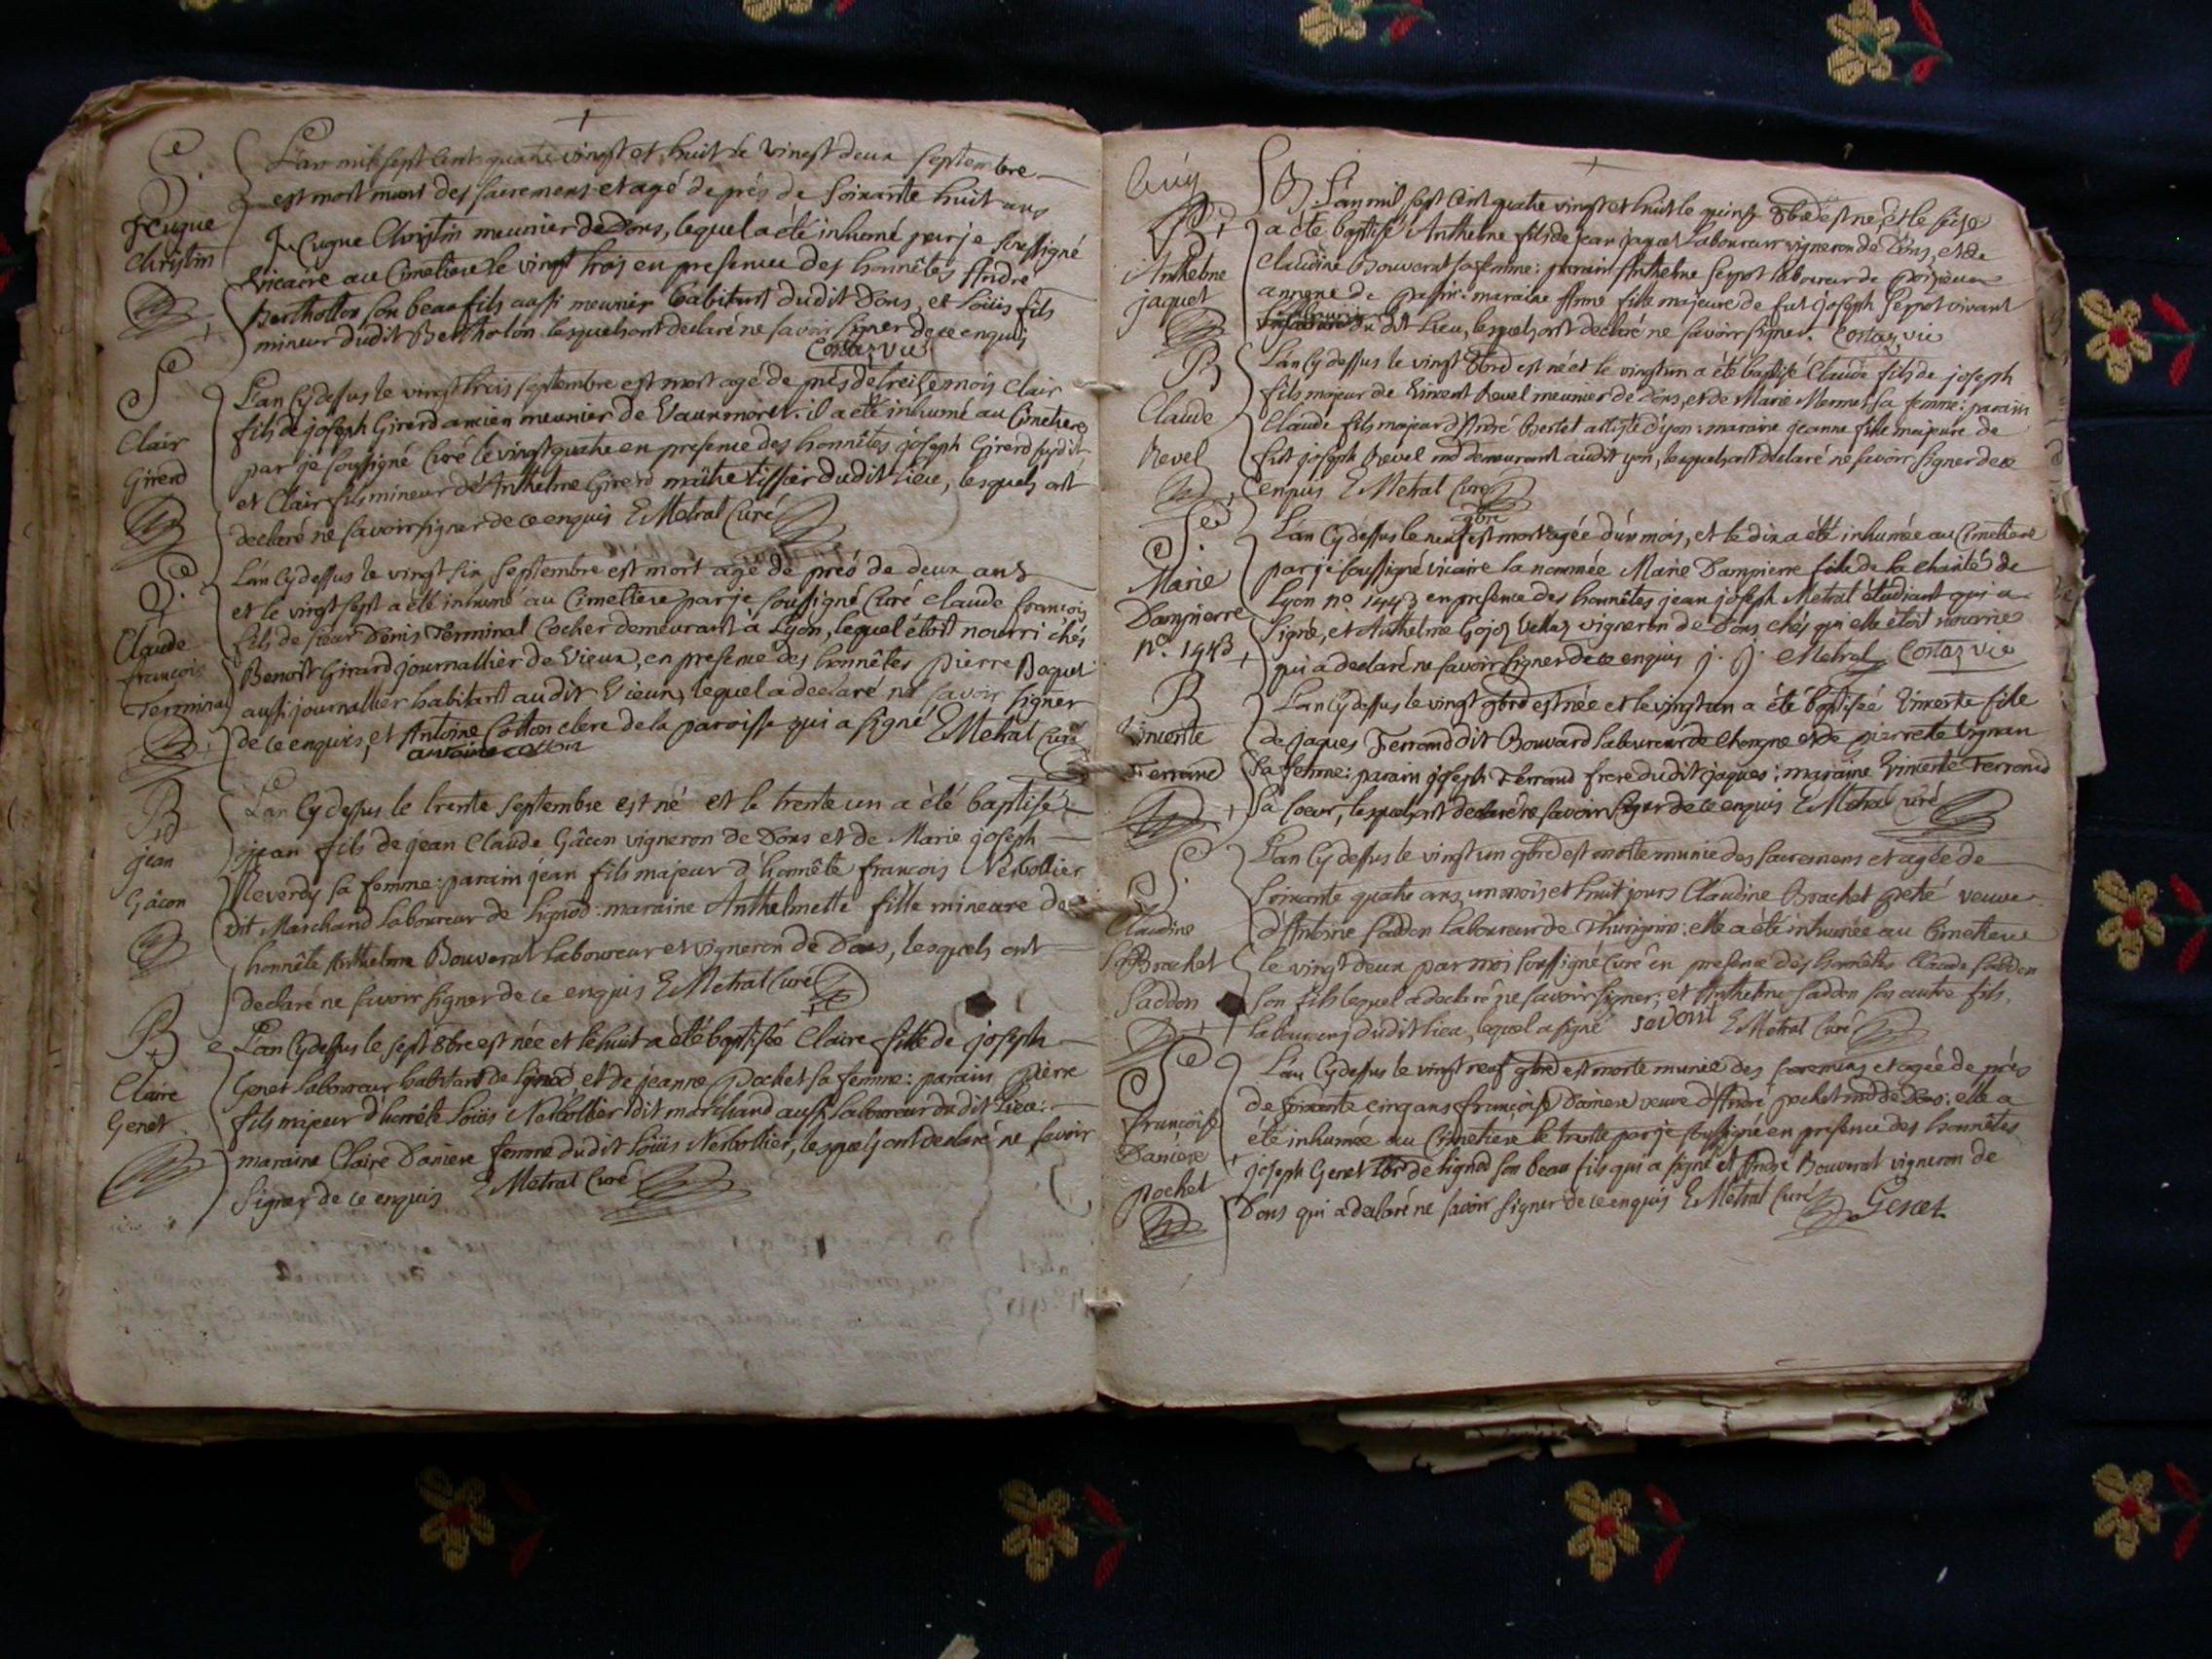 L'an mil sept cent quatre vingt et huit le vingt deux septembre
est mort muni des sacremens et agé de près de soixante huit ans
Cugne Christin meunier de Dons, lequel a été inhumé par je soussigné
vicaire au Cimetiere le vingt trois en presence des honnêtes André
Bertholton son beau fils aussi meunier habitant dudit Dons, et Loüis fils
mineur dudit Bertholon lesquels ont declaré ne savoir signer de ce enquis
Costaz vic
S.
Cugne
Christin
L'an cy dessus le vingt trois septembre est mort agé de près de treize mois Clair
fils de joseph Girerd ancien meunier de Vauxmoret. il a été inhumé au Cimetiere
par je soussigné Curé le vingt quatre en presence des honnêtes joseph Girerd susdit
et Clair fils mineur de Anthelme Girerd maître tissier dudit Lieu, lesquels ont
declaré ne savoir signer de ce enquis E Metral Curé
S
Clair
Girerd
L'an cy dessus le vingt six septembre est mort agé de près de deux ans
et le vingt sept a été inhumé au Cimetiere par je soussigné Curé Claude françois
fils de sieur Denis Terminal Cocher demeurant à Lyon, lequel étoit nourri chés
Benoît Girard journallier de Vieux, en presence des honnêtes pierre Boquet
aussi journallier habitant audit Vieux, lequel a declaré ne savoir signer
de ce enquis, et Antoine Cotton clerc de la paroisse qui a signé E Metral Curé
antoine cotton
S.
Claude
françois
Terminal
L'an cy dessus le trente septembre est né et le trente un a été baptisé
jean fils de jean Claude Gâcon vigneron de Dons et de Marie joseph
Reverdy sa femme: parain jean fils majeur d'honnête françois Nerbollier
dit Marchand laboureur de Lignod: maraine Anthelmette fille mineure de
honnête Anthelme Bouverat laboureur et vigneron de Dons, lesquels ont
declaré ne savoir signer de ce enquis E Metral Curé
B
jean
Gâcon
L'an cy dessus le sept 8bre est née et le huit a été baptisée Claire fille de joseph
Genet laboureur habitant de Lignod et de jeanne Pochet sa femme: parain pierre
fils majeur d'honnête Loüis Nerbollier dit marchand aussi laboureur dudit Lieu:
maraine Claire Daniere femme dudit Loüis Nerbollier, lesquels ont declaré ne savoir
signer de ce enquis E Metral Curé
B
Claire
Genet
L'an mil sept cent quatre vingt et huit le quinze 8bre est né, et le seize
a été baptisé Anthelme fils de jean jaquet laboureur vigneron de Dons, et de
Claudine Bouverat sa femme: parain Anthelme Serpot laboureur de
annexe de maraine Anne fille majeure de fut joseph Serpot vivant
laboureur du dit Lieu, lesquels ont declaré ne savoir signer. Costaz vic
B
Anthelme
jaquet
L'an cy dessus le vingt 8bre est né et le vingt un a été baptisé Claude fils de joseph
fils majeur de Vincent Revel meunier de Dons, et de Marie Mermet sa femme: parain
Claude fils majeur d'André Bertet artiste d'yon: maraine jeanne fille majeure de
fut joseph Revel md demeurant audit yon, lesquels ont declaré ne savoir signer de ce
enquis E Metral Curé
B
Claude
Revel
9bre
L'an cy dessus le neuf est mort agée d'un mois, et le dix a été inhumée au Cimetiere
par je soussigné vicaire la nommée Marie Dampierre fille de la charité de
Lyon no. 1443 en presence des honnêtes jean joseph Metral étudiant qui a
signé, et Anthelme Gojoz Vellaz vigneron de Dons chés qui elle étoit nourrie
qui a declaré ne savoir signer de ce enquis j. j. Metral Costaz vic
S.
Marie
Dampierre
no. 1443
L'an cy dessus le vingt 9bre est née et le vingt un a été baptisée Vincente fille
de jaques Ferrand dit Bouvard laboureur de Chongne et de pierrette Vignan
sa femme: parain joseph Ferrand frere dudit jaques: maraine Vincente Ferrand
sa soeur, lesquels ont declaré ne savoir signer de ce enquis E Metral Curé
B
Vincente
Ferrand
L'an cy dessus le vingt un 9bre est morte munie des sacremens et agée de
soixante quatre ans, un mois et huit jours Claudine Brachet veuve
d'Antoine Saddon laboureur de Thurignin: elle a été inhumée au Cimetiere
le vingt deux par moi soussigné Curé en presence des honnêtes Claude Saddon
son fils lequel a declaré ne savoir signer, et Anthelme Saddon son autre fils,
laboureurs dudit Lieu, lequel a signé sadon E Metral Curé
S.
Claudine
Brachet
Saddon
L'an cy dessus le vingt neuf 9bre est morte munie des sacremens et agée de près
de soixante cinq ans françoise Daniere veuve d'André pochet md de Dons: elle a
été inhumée au Cimetiere le trente par je soussigné en presence des honnêtes
joseph Genet lbr de Lignod son beau fils qui a signé et André Bouverat vigneron de
Dons qui a declaré ne savoir signer de ce enquis E Metral Curé Genet
S
françoise
Daniere
pochet